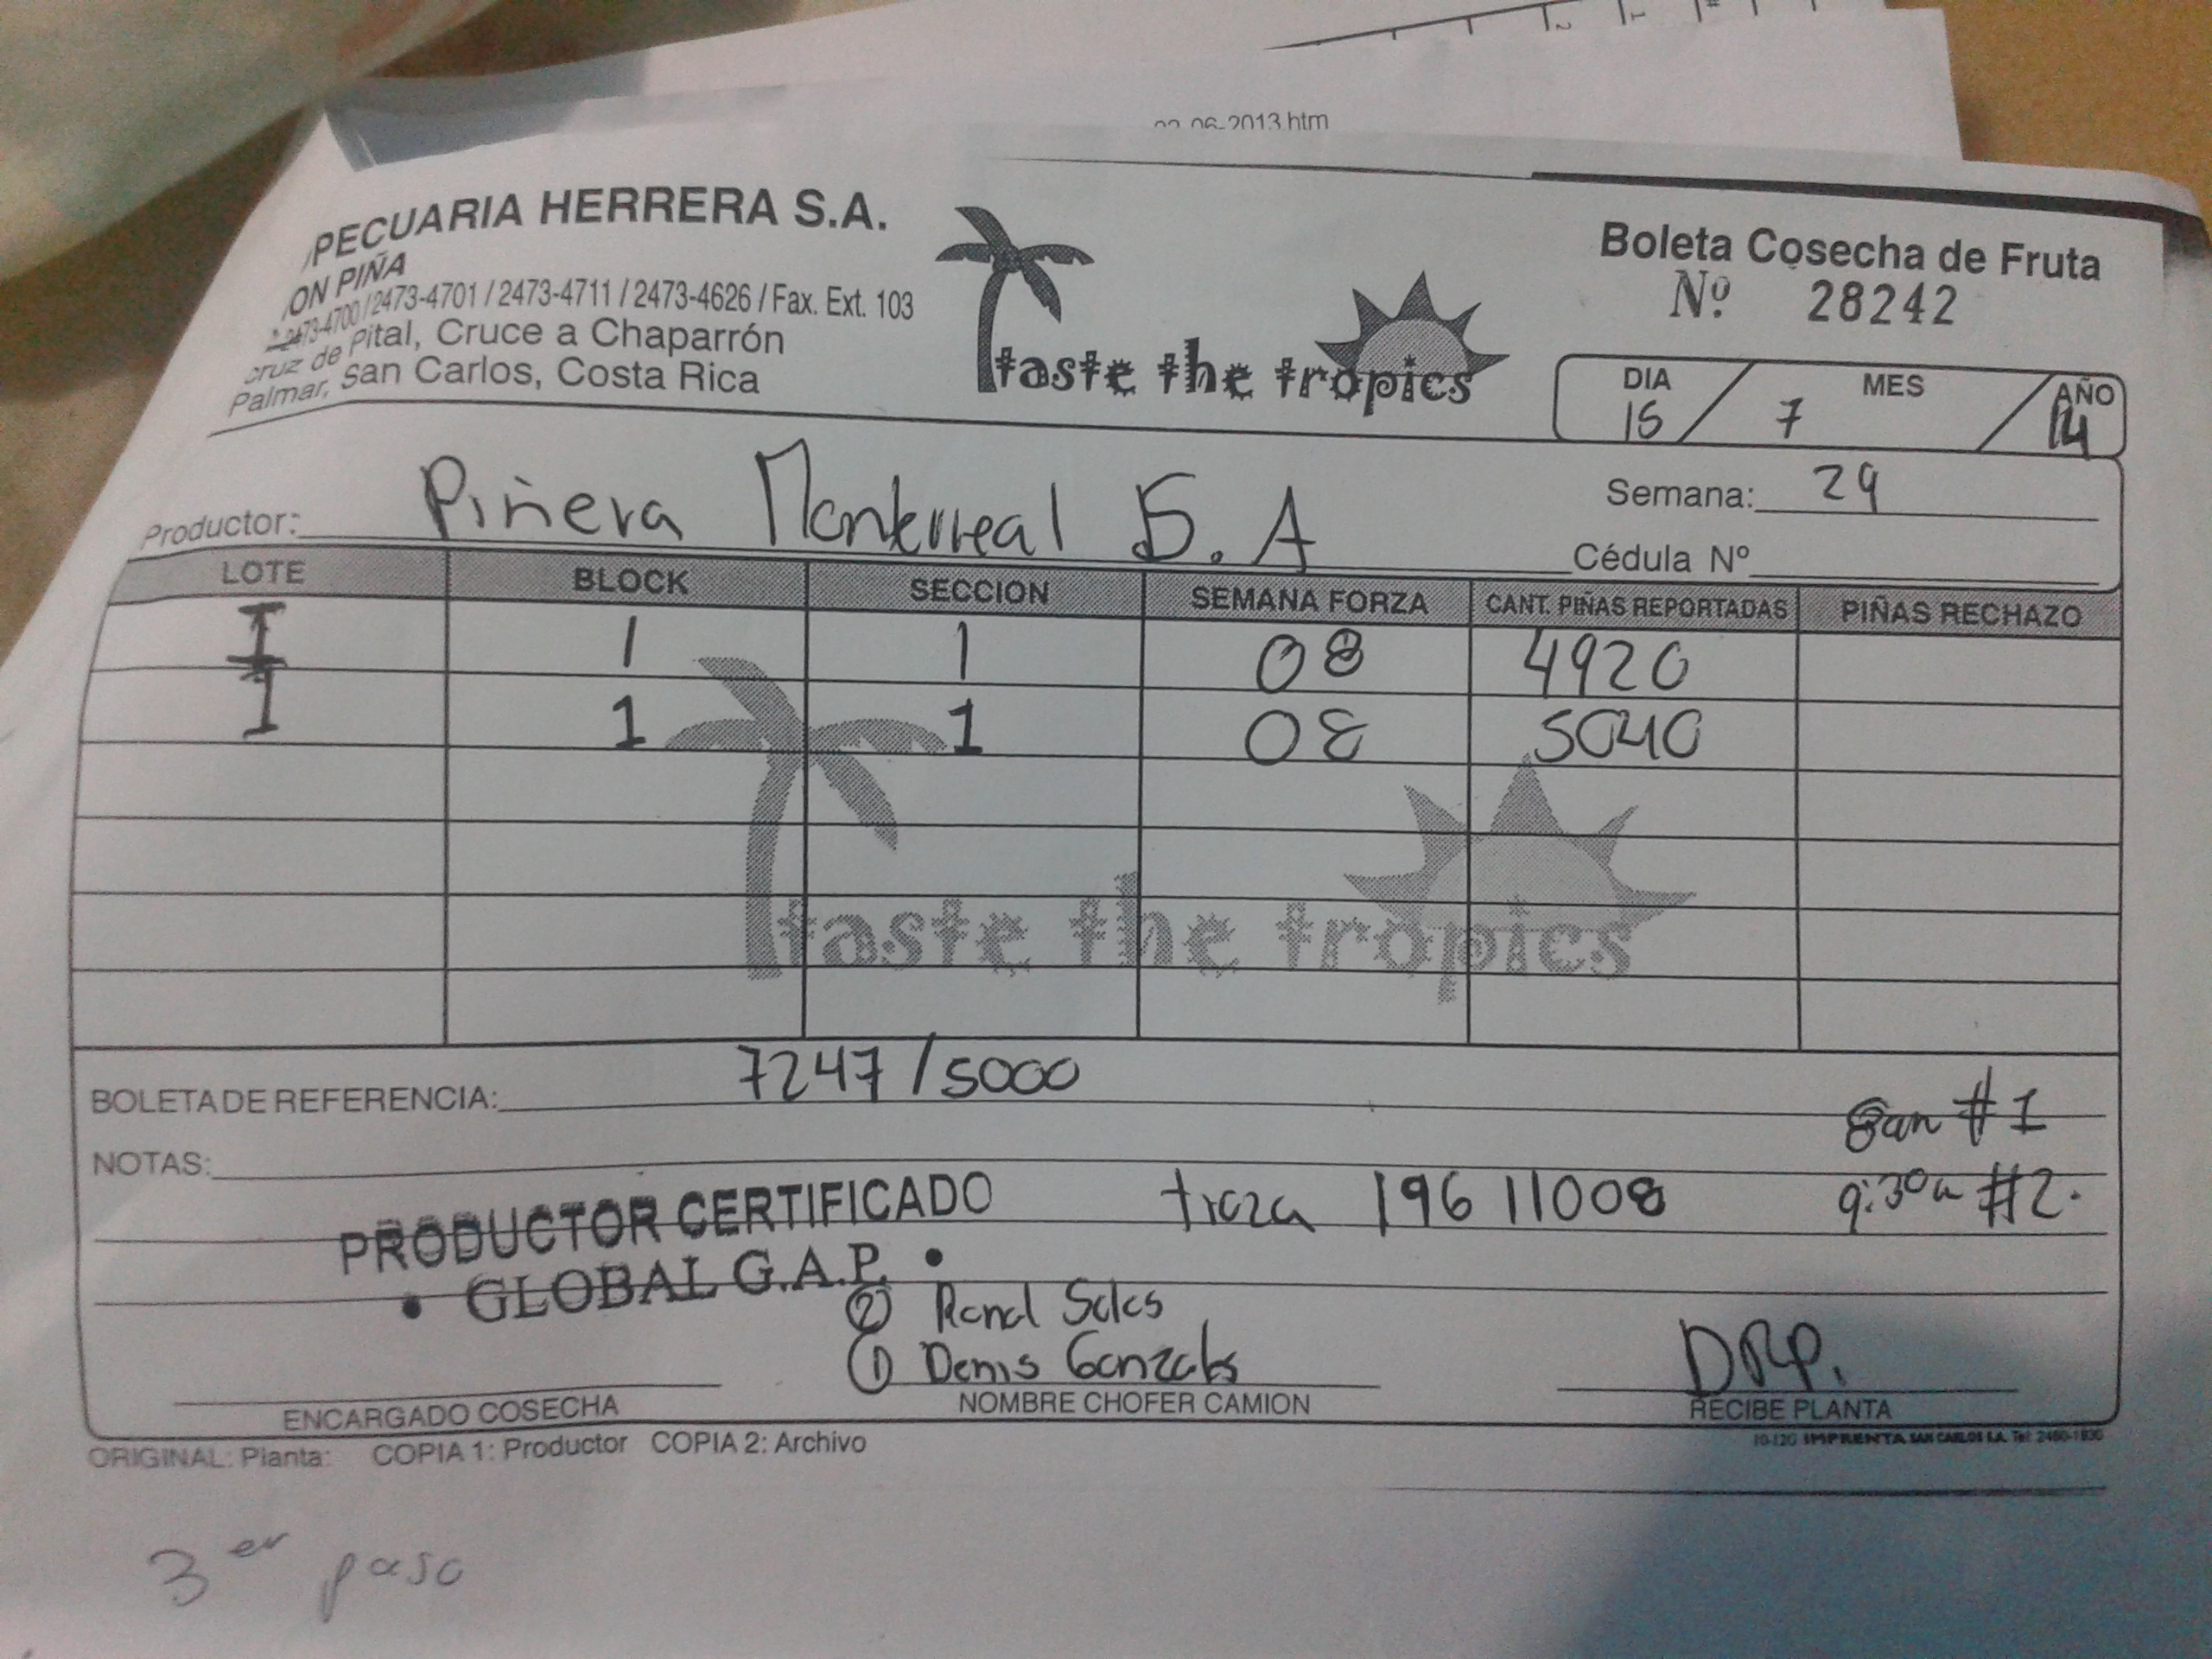 02-06-2013.htm
PECUARIA HERRERA S.A.
ON PIÑA
2473-4700/2473-4701 / 2473-4711 / 2473-4626 / Fax. Ext. 103
cruz de Pital, Cruce a Chaparrón
Palmar, San Carlos, Costa Rica
taste the tropics
Boleta Cosecha de Fruta
Nº 28242
DIA MES AÑO
15 / 7 / 14
Semana: 29
Productor: Piñera Monterreal S.A
Cédula Nº
LOTE BLOCK SECCION SEMANA FORZA CANT. PIÑAS REPORTADAS PIÑAS RECHAZO
I 1 1 08 4920
I 1 1 08 5040
taste the tropics
BOLETA DE REFERENCIA: 7247/5000
8am #1
NOTAS:
PRODUCTOR CERTIFICADO
traza 196 11008
9:30a #2.
• GLOBAL G.A.P. •
② Rond Solis
① Denis Gonzales
DRP.
ENCARGADO COSECHA NOMBRE CHOFER CAMION RECIBE PLANTA
ORIGINAL: Planta: COPIA 1: Productor COPIA 2: Archivo
10-120 IMPRENTA SAN CARLOS S.A. Tel: 2460-1830
3er paso